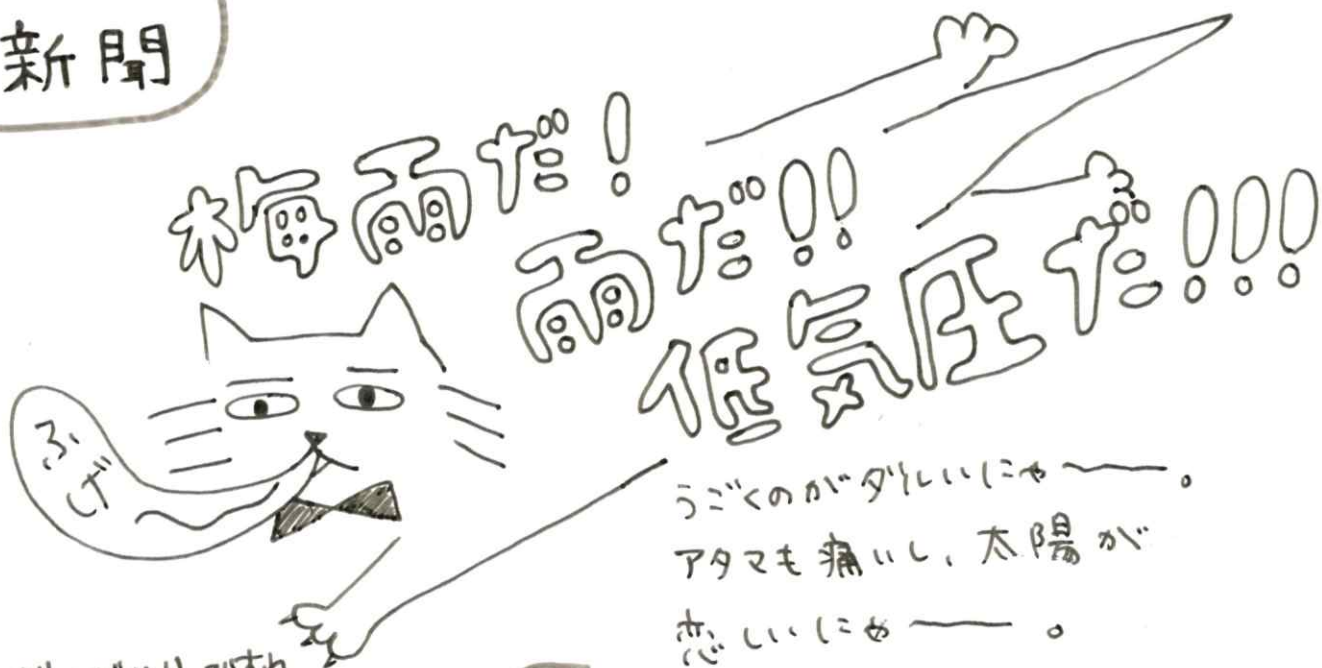 新聞
梅雨だ!
雨だ!!
低気圧だ!!!
ふげ
うごくのがダルいにゃー。
アタマも痛いし、太陽が
恋しいにゃー。